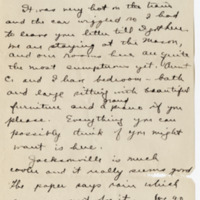 It was very hot on the train
and the car wiggled so I had
to leave your letter till I got here.
We are staying at the mason,
and our rooms here are quite
the most sumptuous yet. Aunt
C. and I have bedroom - bath
and large sitting with beautiful
furniture and a grand piano if you
please. Everything you can
possibly think if you might
want is here.
Jacksonville is much
cooler and it really seems good
The paper says rain which